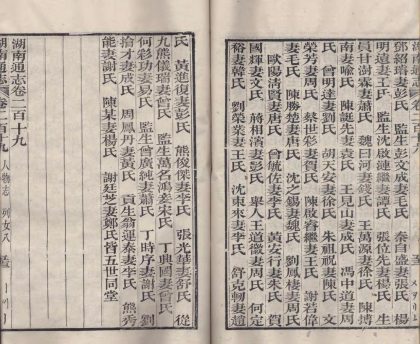 鄧紹瑨妻彭氏 劉文成妻王氏 秦自盛妻張氏 楊
明遠妻王氏 監生沈啟連繼妻譚氏 張位先妻楊氏 生
員甘澍霖妻蕭氏 魏曰河妻錢氏 王萬源妻徐氏 陳博
南妻喻氏 陳誕先妻袁氏 王見山妻成氏 馮中道妻周
氏 曾明達妻劉氏 胡天安妻徐氏 朱祖祝妻陳氏 文
榮芳妻周氏 蔡世彩妻賀氏 陳啟睿繼妻王氏 謝若偉
妻毛氏 陳勝楚妻唐氏 沈之錫妻魏氏 劉鳳樓妻周氏
歐陽清賢妻唐氏 曾毓佐妻李氏 黃安行妻朱氏 賀
國輝妻文氏 蔣相清妻彭氏 舉人王道徵妻周氏 何定
裕妻韓氏 劉榮業妻王氏 沈東來妻李氏 舒克剛妻趙
氏 黃進復妻彭氏 熊俊傑妻李氏 張光華妻舒氏 從
九熊儀瑞妻曾氏 監生萬名鴻妾宋氏 丁興國妻曾氏
何彩功妻易氏 監生曾廣純妻蕭氏 丁時序妻謝氏 劉
掄才妻成氏 周鳳丹妻黃氏 貢生翁運泰妻李氏 熊秀
能妻謝氏 陳某妻楊氏 謝廷芝妻鄭氏皆五世同堂
湖南通志卷二百十九
湖南通志 卷二百十九 人物志 列女八